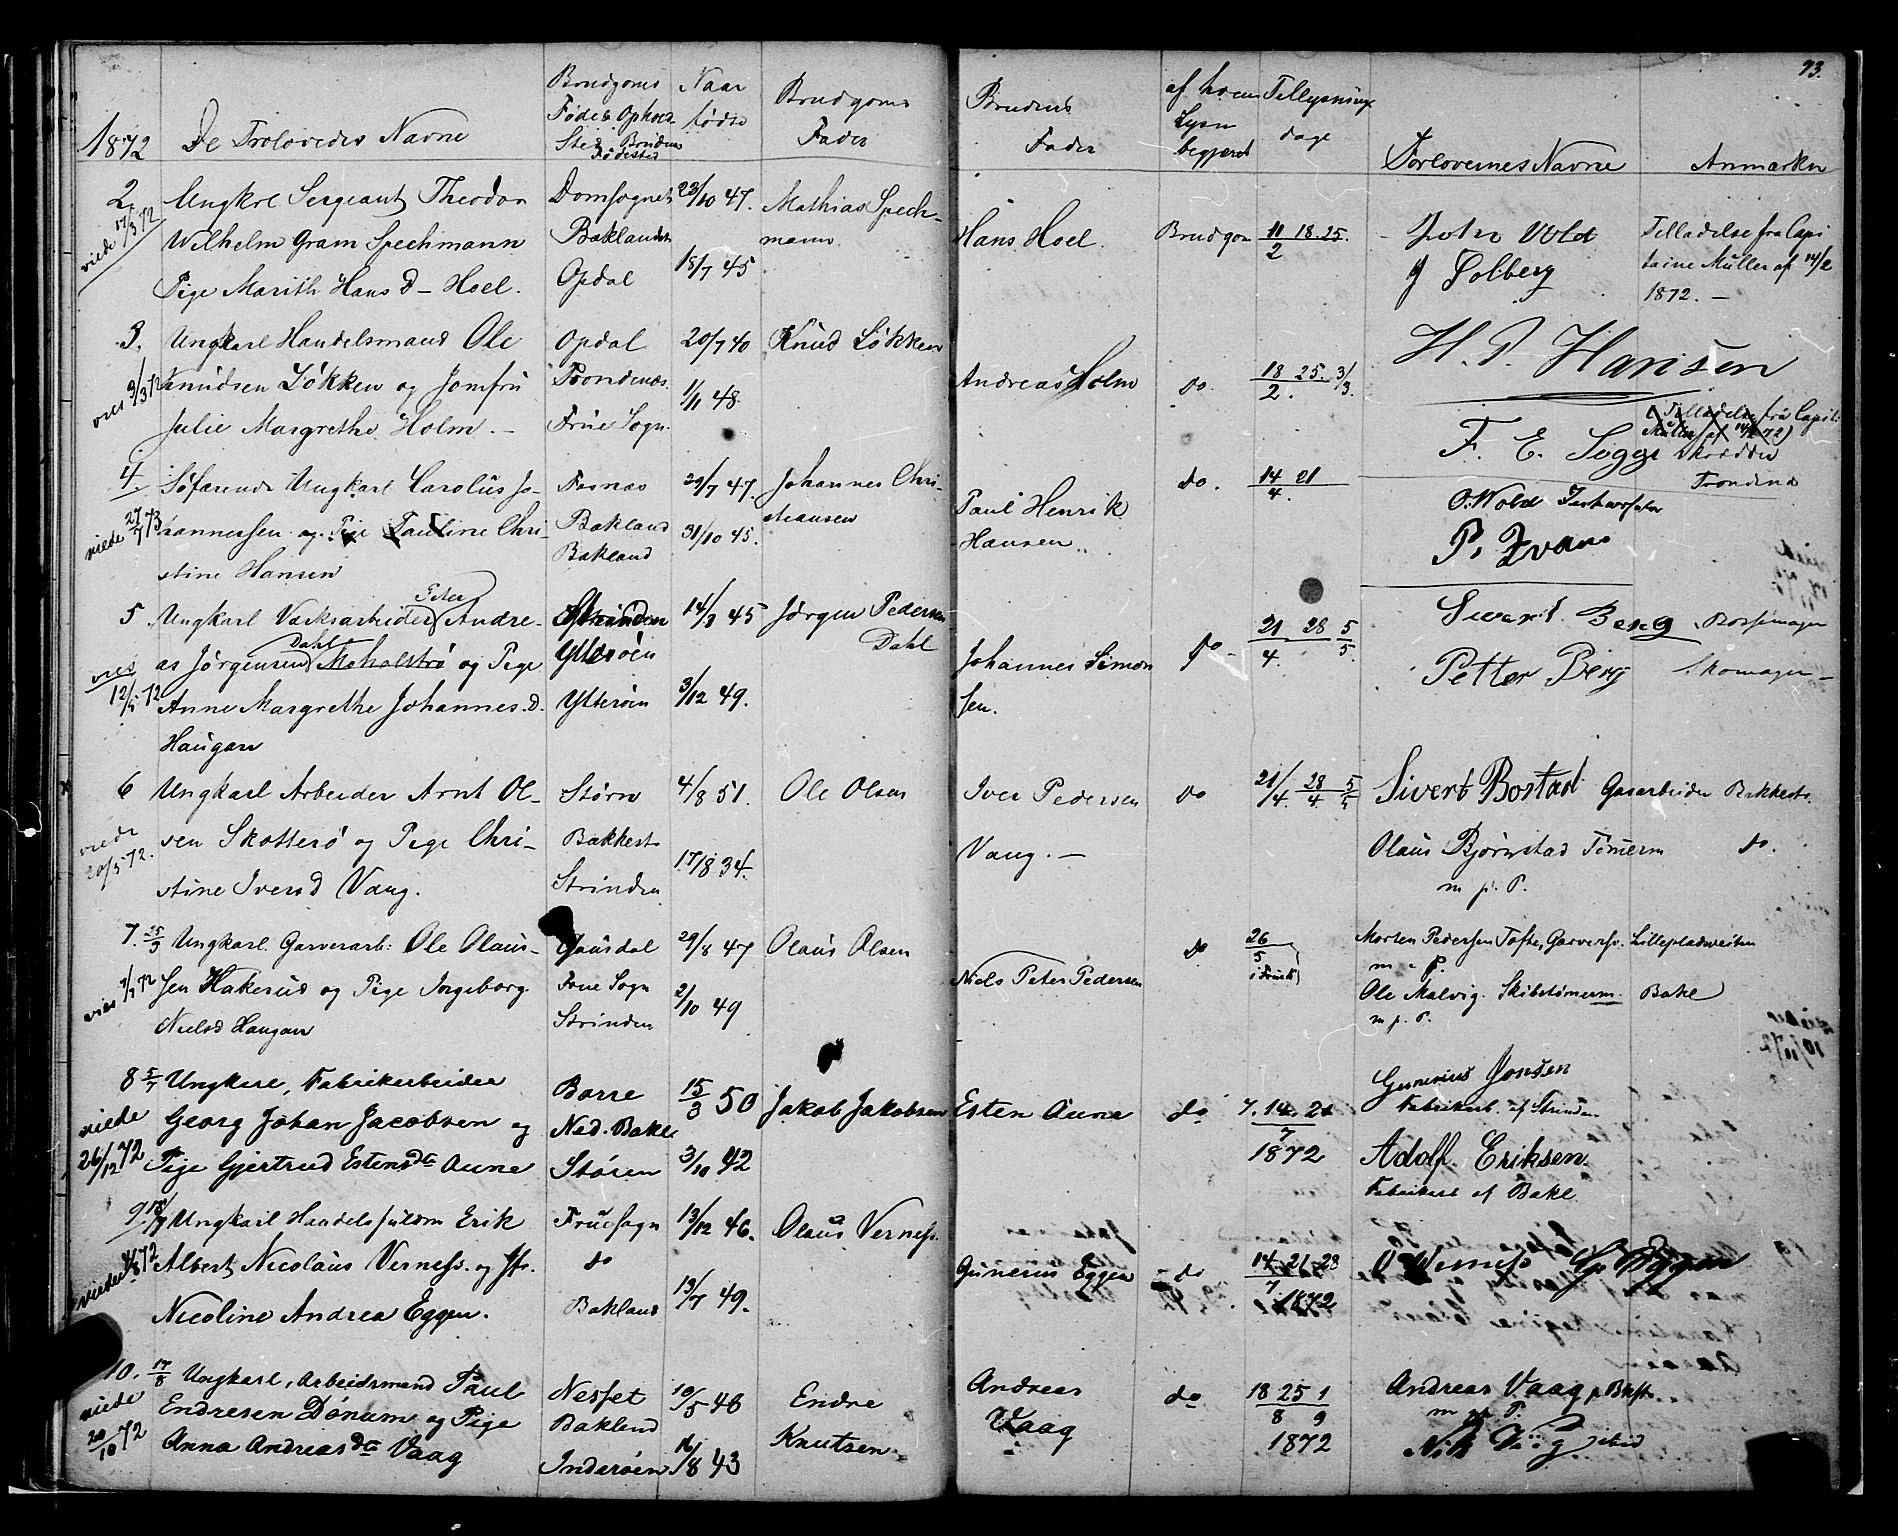 73.
1872
De Trolovedes Navne
Brudgoms
Føde & Ophol
Sted Brudens
Fødested
Naar
fødte
Brudgoms
Fader
Brudens
Fader
af hvem
Lysn
begjæret
Tillysnings
dage
Forlovernes Navne
Anmærkn
2.
viede 17/3 72
Ungkrl Sergeant Theodor
Wilhelm Gram Spechmann
Pige Marith Hans D- Hoel.
Domsognet
Baklandet
Opdal
23/10 47.
15/7 45
Mathias Spech-
mann.
Hans Hoel.
Brudgom
11 18. 25.
2
John Wold
J Solberg
Tilladelse fra Capi
taine Müller af 14/2
1872. —
3.
vies 9/3 72
Ungkarl Handelsmand Ole
Knudsen Løkken og Jomfru
Julie Margrethe Holm. —
Opdal
Trondenæs.
Frue Sogn.
20/7 40
1/11 48.
Knud Løkken
Andreas Holm
do.
18 25. 3/3.
2.
H. P. Hansen
F. E. Segge
Tilladelse fra Capit:
Müller af 14/2 72)
Skrædder
Trondhd
4.
viede 27/7 73
Søfarende Ungkarl Carolus Jo-
hannessen og Pige Pauline Chri-
stine Hansen
Fosnæs
Bakland
Bakland
29/7 47.
31/10 45.
Johannes Chri-
stiansen
Paul Henrik
Hansen..
do.
14 21
4.
O. Wold
P. Ivan
5
vies
12/5 72
Ungkarl Værksarbeider Peter Andre-
as Jørgensen Dahl Moholstrø og Pige
Anne Margrethe Johannes.d.
Haugan
Strinden
Ytterøen
Ytterøen
14/3 45
3/12 49.
Jørgen Pedersen
Dahl
Johannes Simon
sen.
do -
21 28 5/5.
4.
Sivert Berg
Petter Berg
Skomager —
6
viede
20/5 72.
Ungkarl Arbeider Arnt Ol-
sen Skotterø og Pige Chri-
stine Iversd Vang.
Størn
Bakkest
Strinden
4/8 51.
17/8 34.
Ole Olsen
Iver Pedersen
Vang. —
do
21/4. 28/4 5/5
Sivert Bostad Gasarbeider Bakkest.
Olaus Bjørnstad Tømerm do.
m. p. P.
7. 25/5
vies 7/7 72
Ungkarl. Garverarb: Ole Olaus-
sen Hakerud og Pige Ingeborg
Nielsd Haugan
Gausdal
Frue Sogn
Strinden
29/8 47
2/10 49
Olaus Olsen
Niels Peter Pedersen
do
26
5
Morten Pedersen Tofte, Garversv. Lillepladsveiten
m p P.
Ole Malvig. Skibstømerm. Bakl
m p. P.
8 5/7
viede
26/12 72
Ungkarl, Fabrikarbeider
Georg Johan Jacobsen og
Pige Gjertrud Estensdtr Aune
Borre
Ned. Bakl.
Støren
15/3 50
3/10 42
Jakob Jakobsen
Esten Aune
do
7. 14. 21
7
1872
Gunerius Jonsen
Fabrikarb. af Strinden
Adolf. Eriksen.
Fabrikarb af Bakl.
9.
Ungkarl Handelsfuldm Erik
Albert Nicolaus Verness. og Jfr.
Nicoline Andrea Eggen.
Fruesogn
do
Bakland
13/12 46.
13/7 49.
Olaus Verness.
Gunerius Eggen
do
14 21 28
7
1872
10. 17/8
viede
20/10 72
Ungkarl, Arbeidsmand Paul
Endresen Dønum og Pige
Anna Andreasdtr Vaag
Nesset
Bakland
Inderøen
10/5 46
16/8 43
Endre
Knutsen
Andreas
Vaag
do
18 25 1
8 9
1872
Andreas Vaag
m p P.